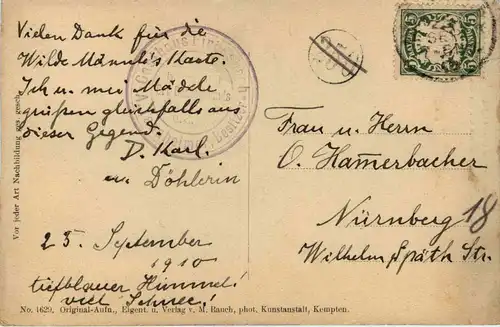 Vielen Dank für die
Wilde Männle's Karte.
Ich u. mei Mädle
grüßen gleichfalls aus
dieser Gegend.
D. Karl.
u. Döhlerin
25. September
1910
tiefblauer Himmel!
viel Schnee!
Frau u. Herrn
O. Ham̅erbacher
Nürnberg 18
Wilhelm Späth Str.
5 5
BAYERN
Vor jeder Art Nachbildung ges. gesch.
No. 4629. Original-Aufn., Eigent. u. Verlag v. M. Rauch, phot. Kunstanstalt, Kempten.